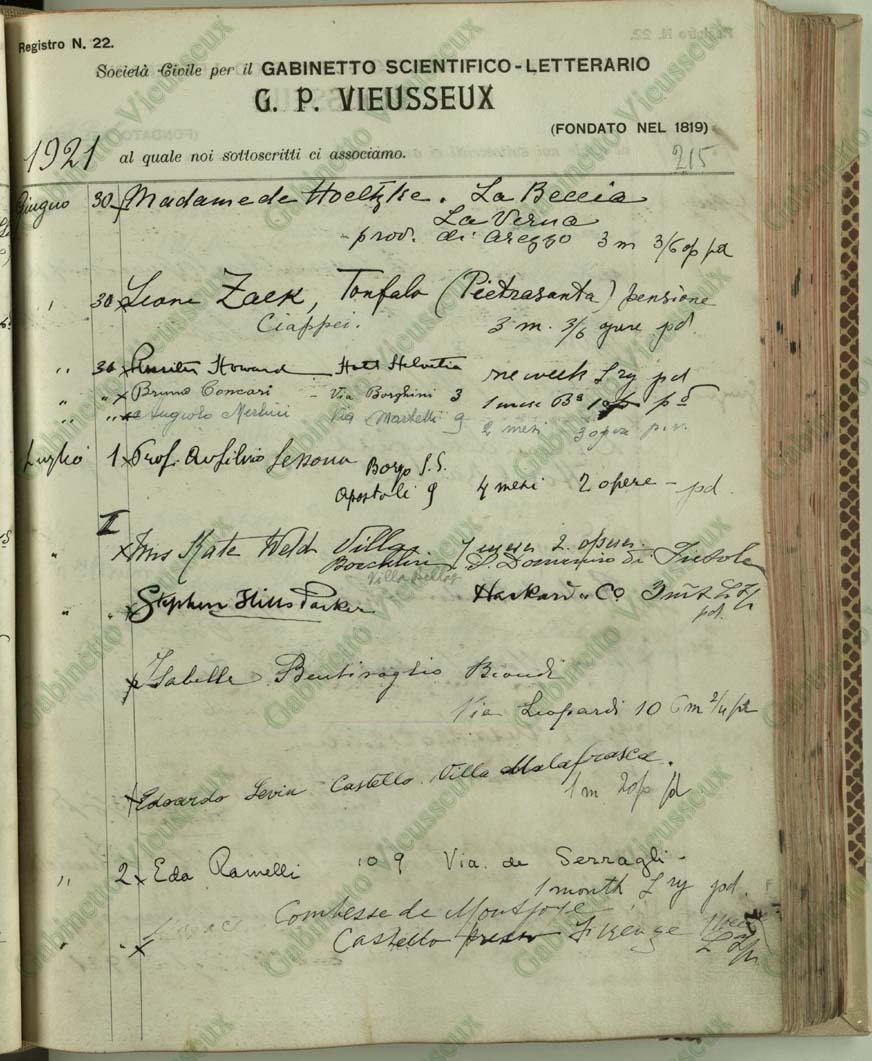 Registro N. 22.
Società Civile per il GABINETTO SCIENTIFICO-LETTERARIO
G. P. VIEUSSEUX
(FONDATO NEL 1819)
1921 al quale noi sottoscritti ci associamo.
215
Giugno 30 Madame de Hoeltzke. La Beccia
La Verna
prov. di Arezzo 3 m 3/6 op pd
" 30 Leone Zack, Tonfalo (Pietrasanta) pensione
Ciappei. 3 m. 3/6 opere pd.
" 30 Howard Hotel Helvetia one week pd
" " Bruno Concari - Via Borghini 3 1 mese
" " Augusto Nerbini Via Martelli 9 2 mesi 3 opere
Luglio 1 Prof. Borgo S.S.
Apostoli 9 4 mesi 2 opere - pd.
II
" Mrs Kate Weld Villa 2. opere.
S. Domenico di Fiesole
" " Stephen Hills Parker Haskard & Co 3
pd.
Isabelle Bentivoglio Biondi
Via Leopardi 10 6 m 2/4 pd
Edoardo Levin Castello Villa Malafrasca.
1 m 2 op pd
" 2 Eda Ramelli 109 Via de Serragli -
1 month pd.
Combesse de Montjoie
" Castello presso Firenze